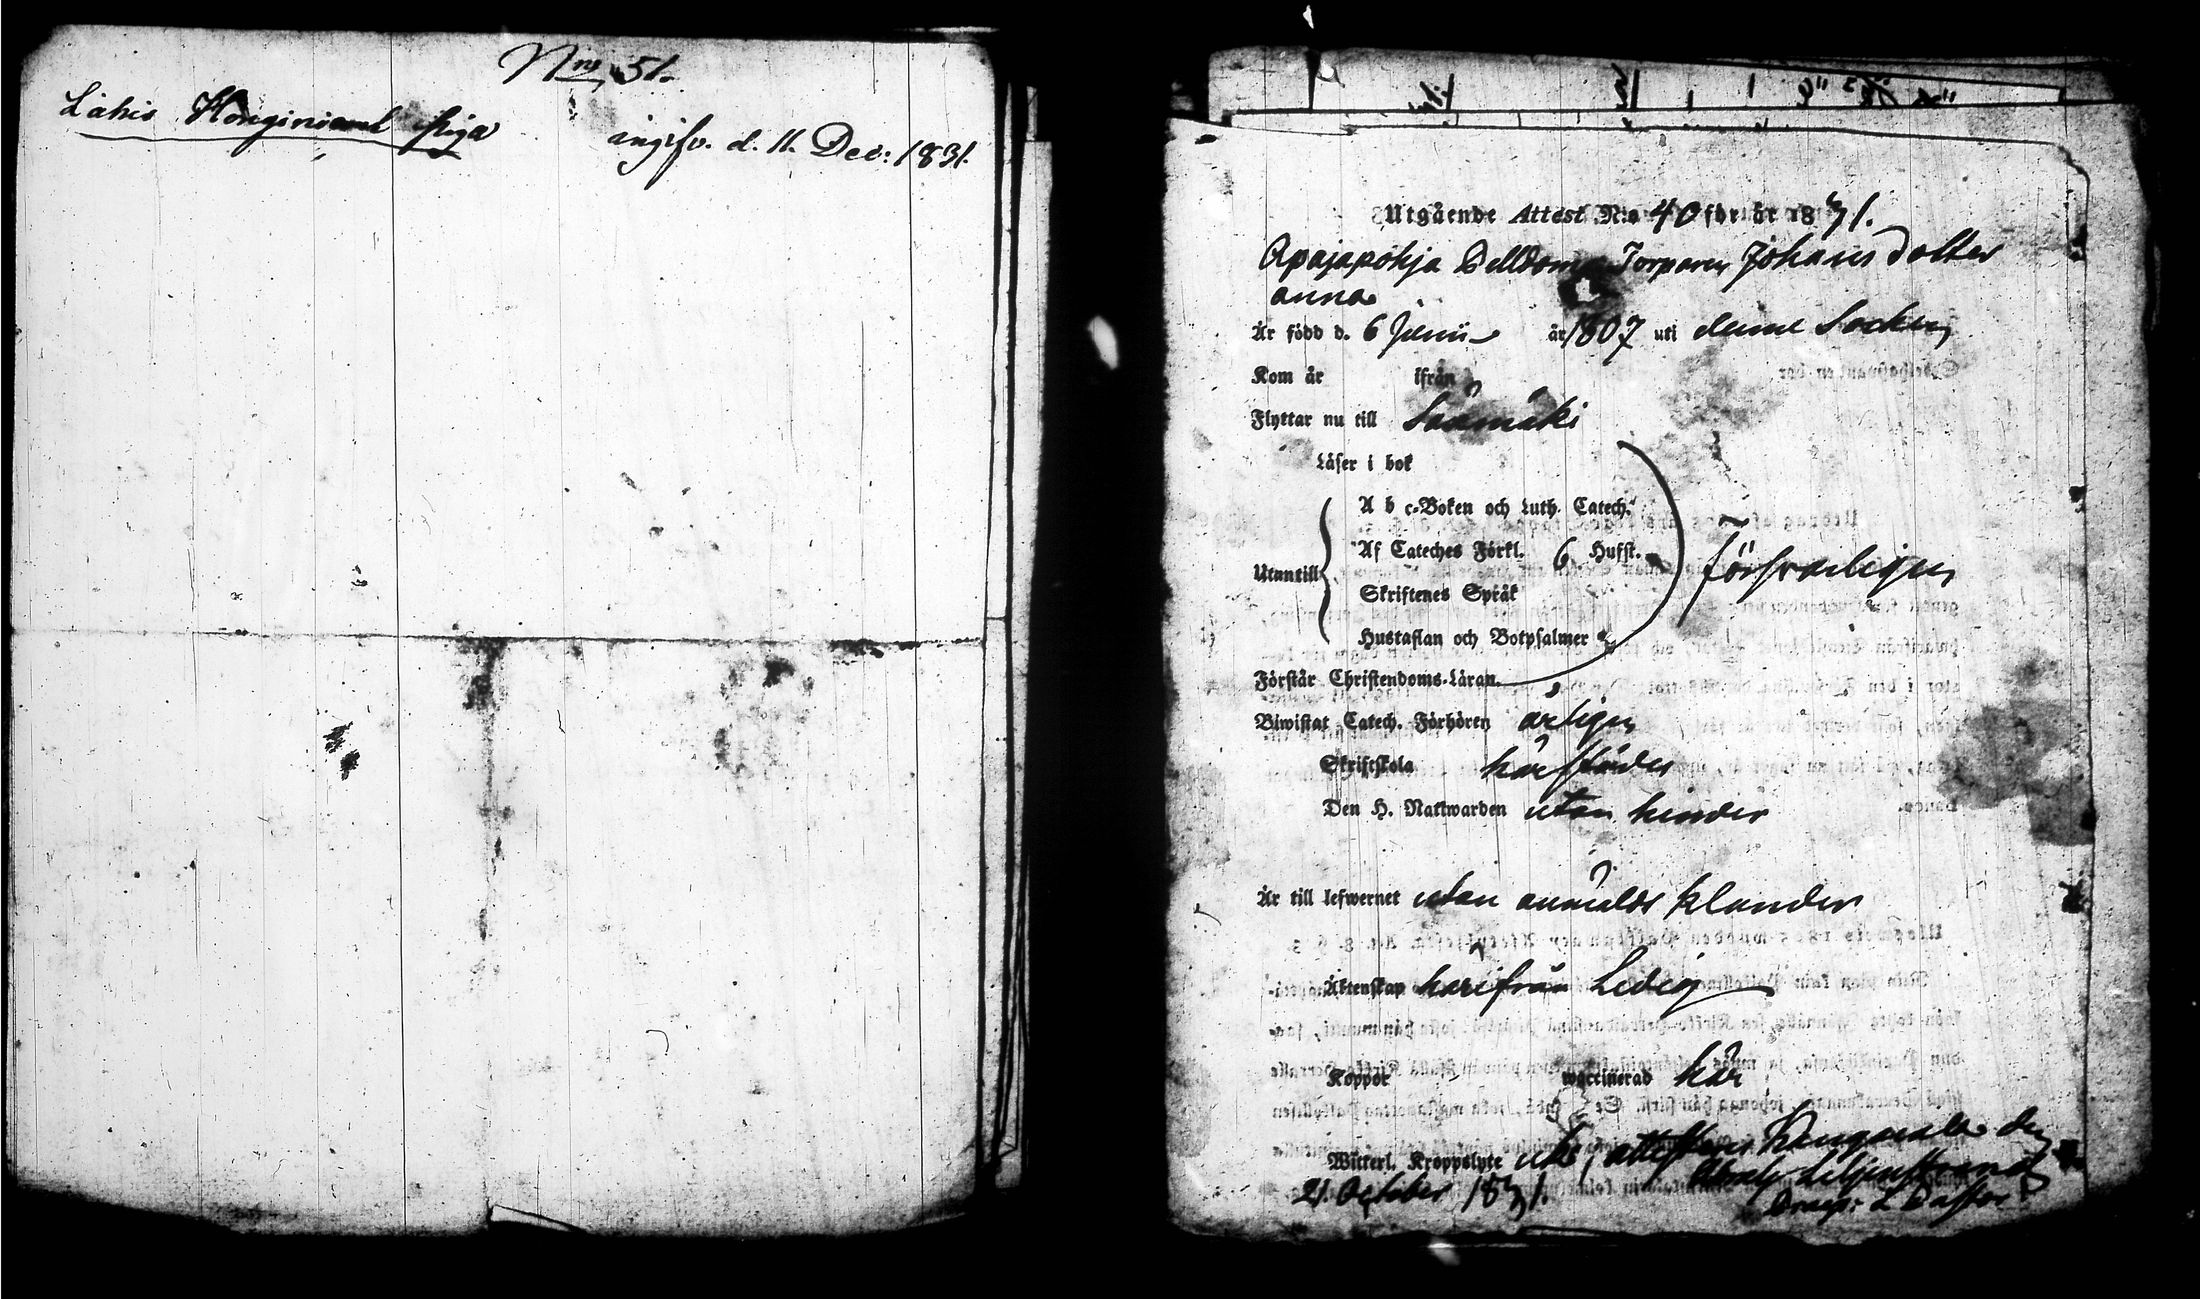 Nro 51.
Lahis Honginiemi piga
ingifv. d. 11. Dec: 1831.
Utgående Attest N:o 40 för år 1831.
Apajapohja Torparen Johans Dotter
Anna
Är född d. 6 Junii år 1807 uti denne Socken
Kom år ifrån
Flyttar nu till Säämäki
Läser i bok
A b c-Boken och Luth. Catech.
Utantill Af Cateches Förkl. 6 Hufst. försvarligen
Skriftenes Språk
Hustaflan och Botpsalmer
Förstår Christendoms-Läran
Biwistat Catech. Förhören årligen
Skriftskola härstädes
Den H. Nattwarden utan hinder
Är till lefwernet utan anmäldt klander
Äktenskap härifrån Ledig
Koppor waccinerad här
Witterl. Kroppslyte utan, attesterar Kangasala den
21 October 1831. Abrah. Liljenstrand
Pastor